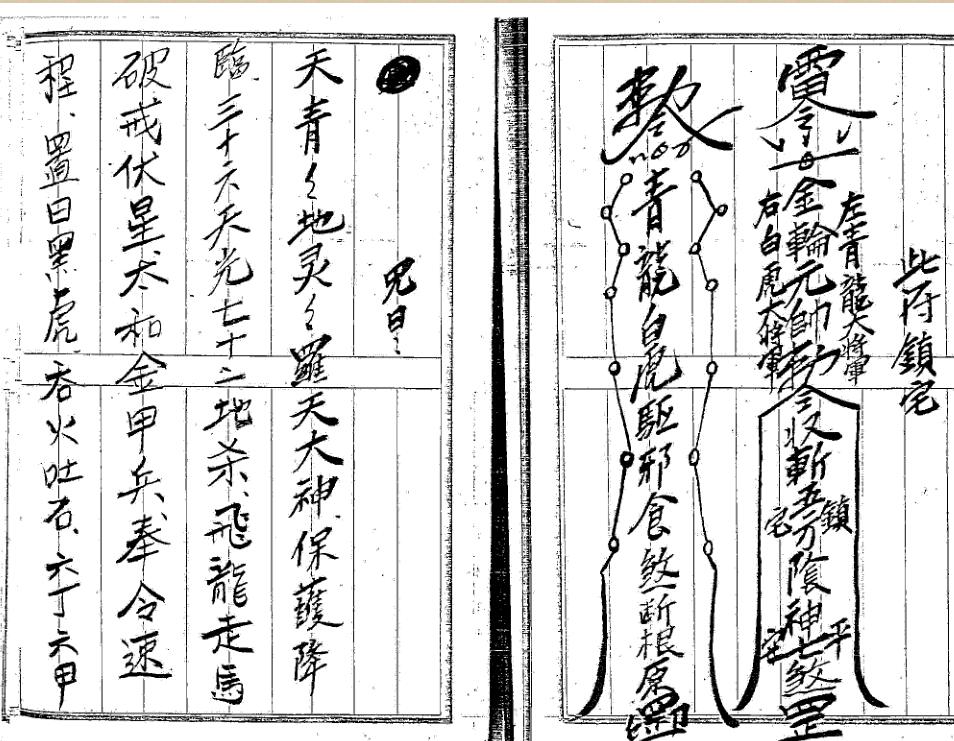 此符鎮宅
左青龍大將軍
雷令金輪元帥勅令收斬五方陰神七煞罡
右白虎大將軍
鎮宅
平安
勅令青龍白虎驅邪食煞斷根原罡印
咒曰:
天青々地灵々羅天大神、保護降
臨、三十六天光七十二地杀、飛龍走馬
破戒伏星犬和金甲兵、奉令速
程、置日黑虎、吞火吐石、六丁六甲